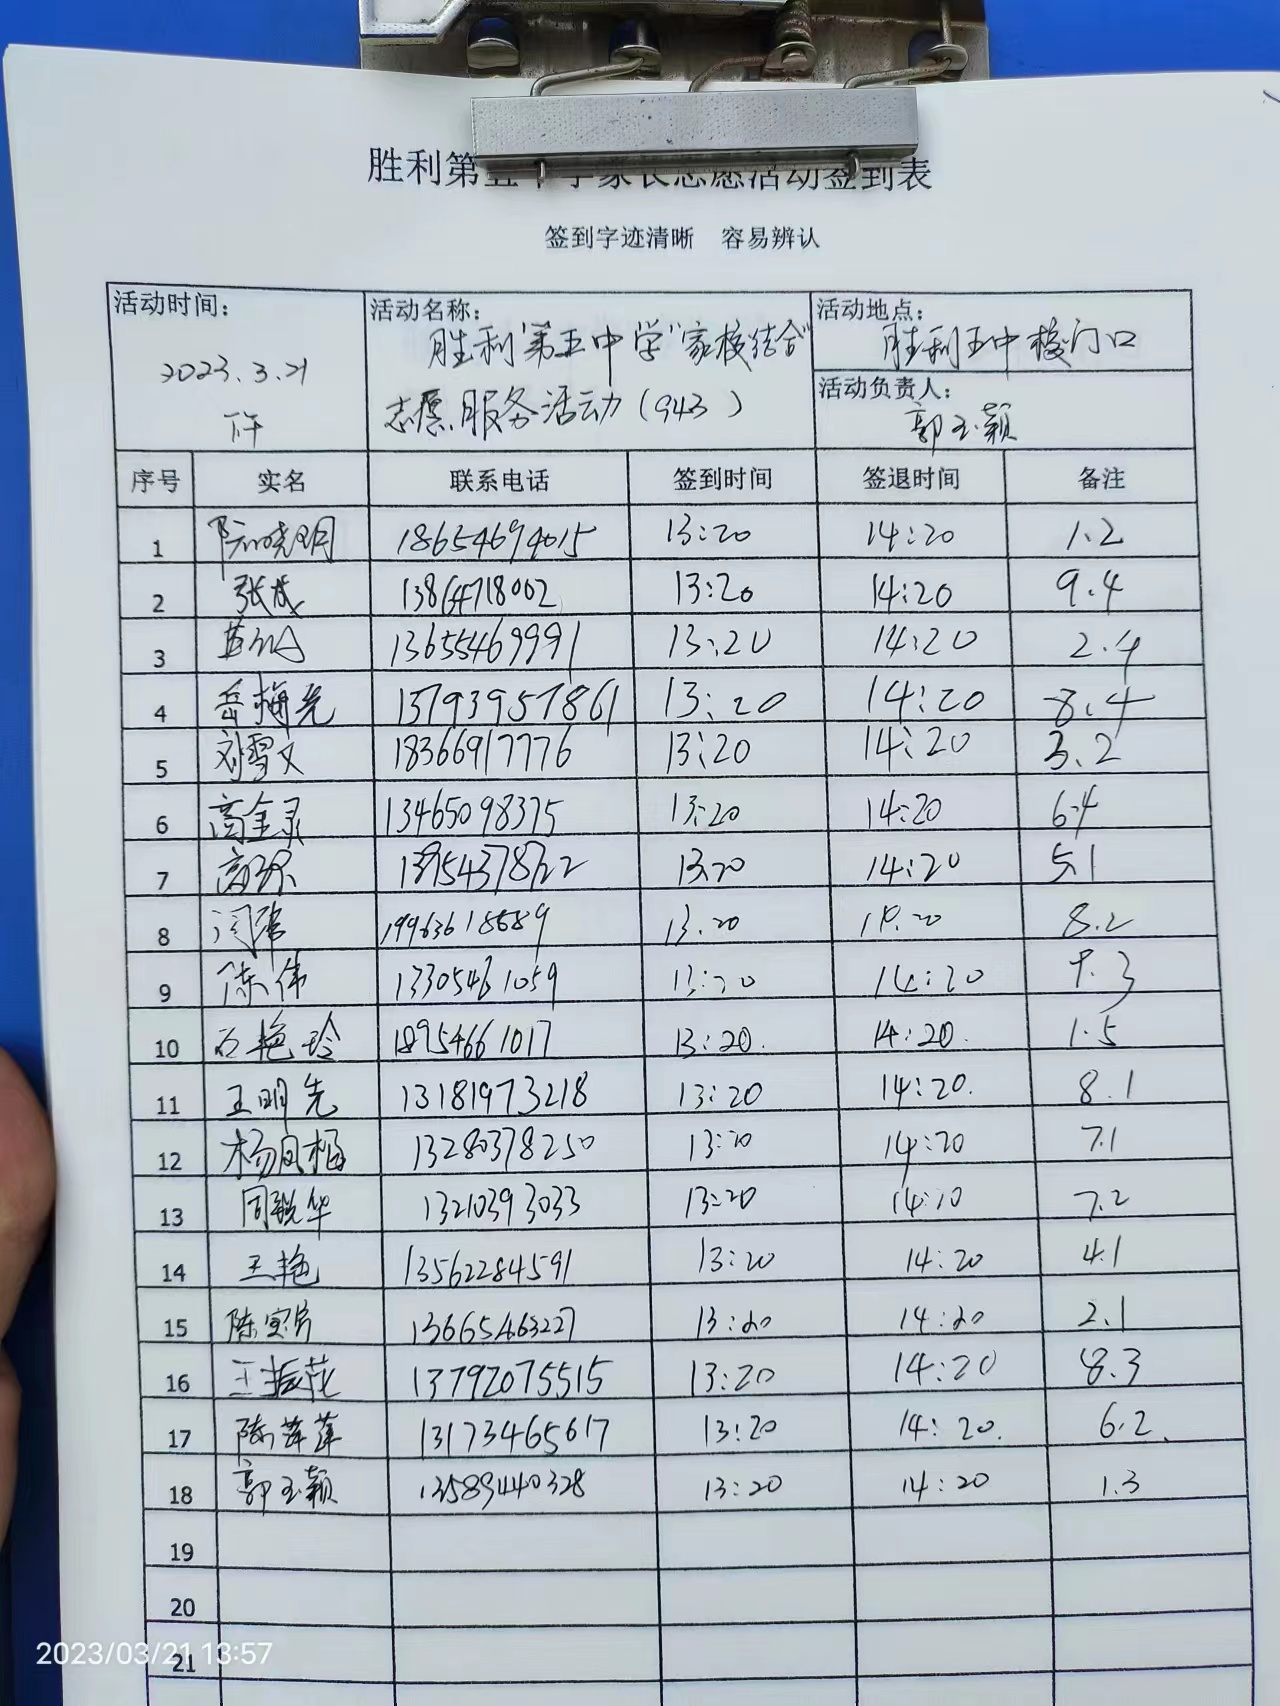 胜利第五中学家长志愿活动签到表
签到字迹清晰 容易辨认
活动时间: 2023.3.21 下午
活动名称: 胜利第五中学"家校结合"
志愿服务活动(943)
活动地点: 胜利五中校门口
活动负责人: 郭玉颖
序号 实名 联系电话 签到时间 签退时间 备注
1 阮晓明 18654694015 13:20 14:20 1.2
2 张成 13864718002 13:20 14:20 9.4
3 13655469991 13:20 14:20 2.4
4 岳梅先 13793957861 13:20 14:20 8.4
5 刘雪文 18366917776 13:20 14:20 3.2
6 高金录 13465098375 13:20 14:20 6.4
7 高环 13:20 14:20 5.1
8 闫 13:20 14:20 8.2
9 陈伟 13305461059 13:20 14:20 9.3
10 石艳玲 18954661017 13:20. 14:20. 1.5
11 王明先 13181973218 13:20 14:20. 8.1
12 杨凤梅 13280378250 13:20 14:20 7.1
13 周锐华 13210393033 13:20 14:20 7.2
14 王艳 13562284591 13:20 14:20 4.1
15 陈 13665463227 13:20 14:20 2.1
16 王振花 13792075515 13:20 14:20 8.3
17 陈萍萍 13173465617 13:20 14:20. 6.2.
18 郭玉颖 13589440328 13:20 14:20 1.3
19
20
21
2023/03/21 13:57